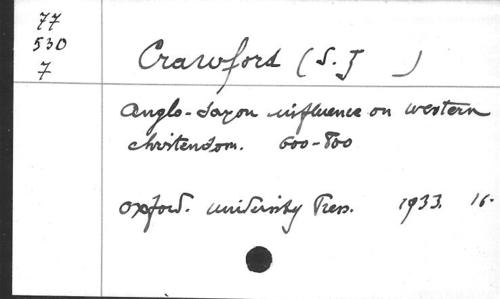 77
530
7
Crawford (S. J )
Anglo-Saxon influence on western
christendom. 600-800
Oxford. University Press. 1933. 16.